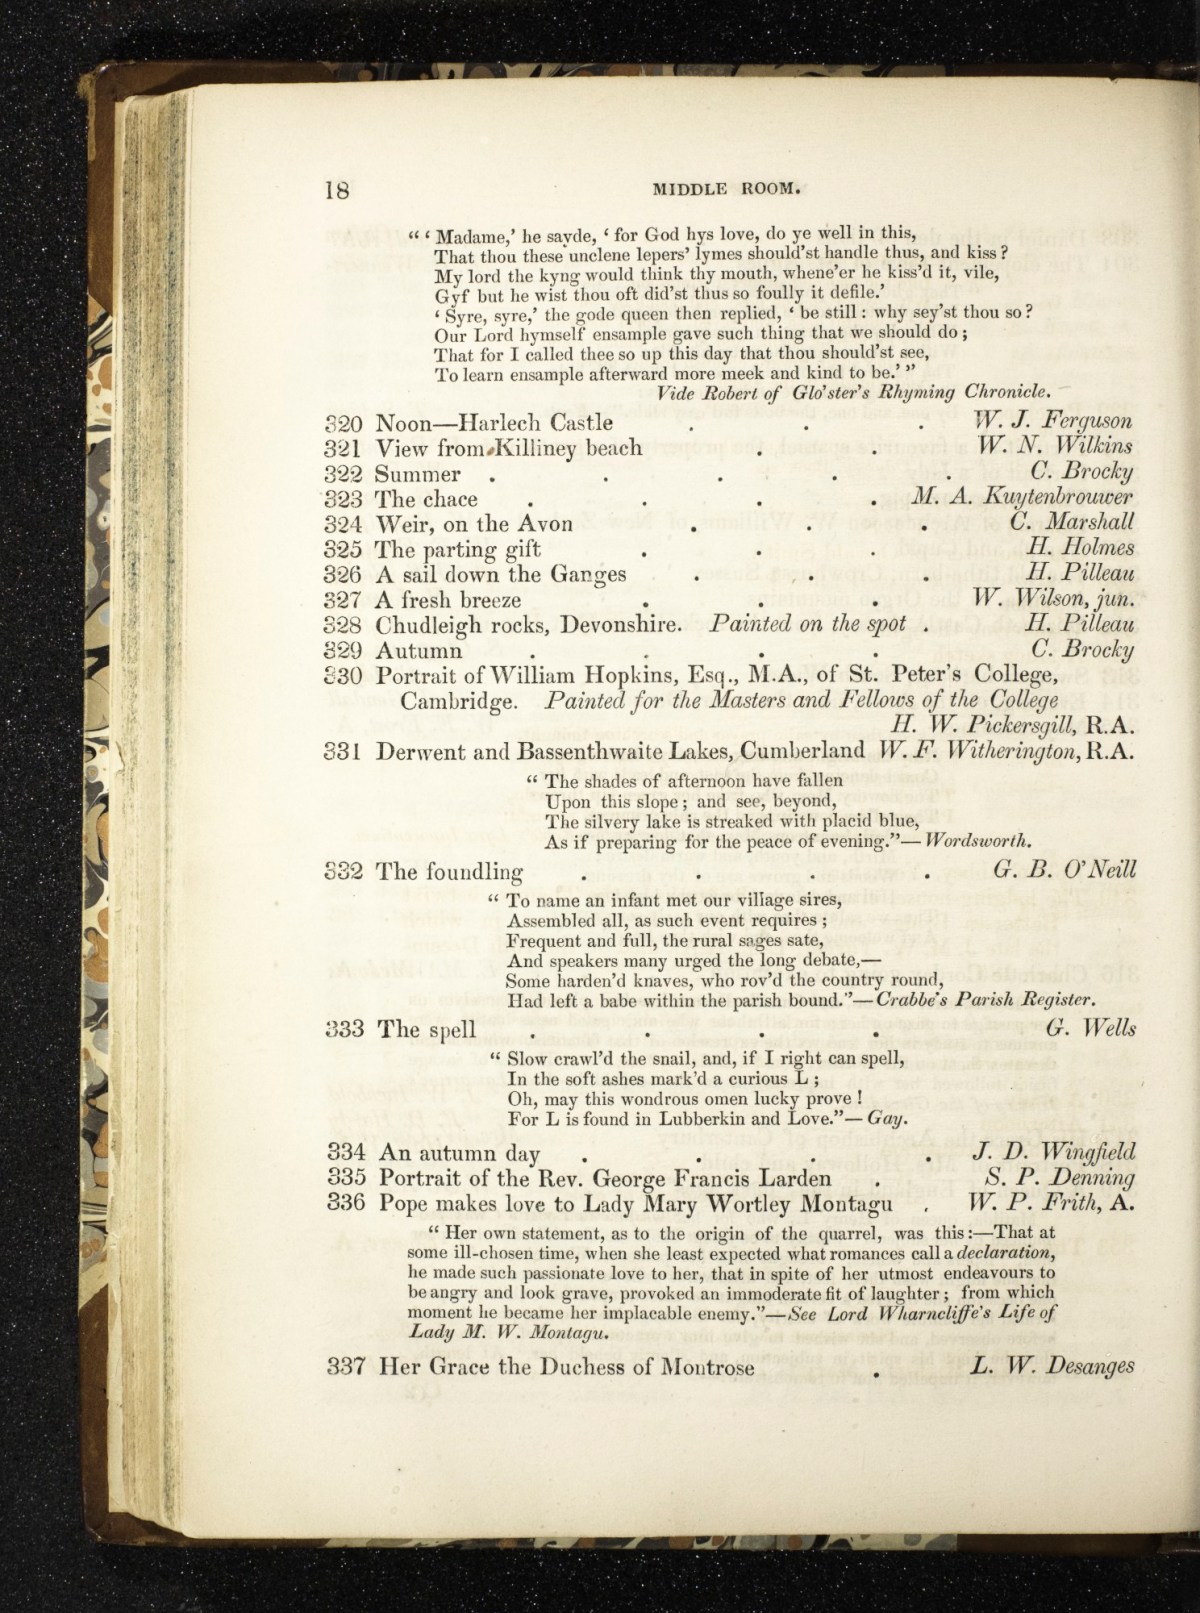 18 MIDDLE ROOM.
“ ‘ Madame,’ he sayde, ‘ for God hys love, do ye well in this,
That thou these unclene lepers’ lymes should’st handle thus, and kiss ?
My lord the kyng would think thy mouth, whene’er he kiss’d it, vile,
Gyf but he wist thou oft did’st thus so foully it defile.’
‘ Syre, syre,’ the gode queen then replied, ‘ be still : why sey’st thou so ?
Our Lord hymself ensample gave such thing that we should do ;
That for I called thee so up this day that thou should’st see,
To learn ensample afterward more meek and kind to be.’ ”
Vide Robert of Glo’ster’s Rhyming Chronicle.
320 Noon—Harlech Castle . . . W. J. Ferguson
321 View from Killiney beach . . W. N. Wilkins
322 Summer . . . . . C. Brocky
323 The chace . . . . M. A. Kuytenbrouwer
324 Weir, on the Avon . . . C. Marshall
325 The parting gift . . . H. Holmes
326 A sail down the Ganges . . . H. Pilleau
327 A fresh breeze . . . W. Wilson, jun.
328 Chudleigh rocks, Devonshire. Painted on the spot . H. Pilleau
329 Autumn . . . . C. Brocky
330 Portrait of William Hopkins, Esq., M.A., of St. Peter’s College,
Cambridge. Painted for the Masters and Fellows of the College
H. W. Pickersgill, R.A.
331 Derwent and Bassenthwaite Lakes, Cumberland W. F. Witherington, R.A.
“ The shades of afternoon have fallen
Upon this slope ; and see, beyond,
The silvery lake is streaked with placid blue,
As if preparing for the peace of evening.”—Wordsworth.
332 The foundling . . . . G. B. O’Neill
“ To name an infant met our village sires,
Assembled all, as such event requires ;
Frequent and full, the rural sages sate,
And speakers many urged the long debate,—
Some harden’d knaves, who rov’d the country round,
Had left a babe within the parish bound.”—Crabbe’s Parish Register.
333 The spell . . . . G. Wells
“ Slow crawl’d the snail, and, if I right can spell,
In the soft ashes mark’d a curious L ;
Oh, may this wondrous omen lucky prove !
For L is found in Lubberkin and Love.”—Gay.
334 An autumn day . . . . J. D. Wingfield
335 Portrait of the Rev. George Francis Larden . S. P. Denning
336 Pope makes love to Lady Mary Wortley Montagu . W. P. Frith, A.
“ Her own statement, as to the origin of the quarrel, was this :—That at
some ill-chosen time, when she least expected what romances call a declaration,
he made such passionate love to her, that in spite of her utmost endeavours to
be angry and look grave, provoked an immoderate fit of laughter ; from which
moment he became her implacable enemy.”—See Lord Wharncliffe’s Life of
Lady M. W. Montagu.
337 Her Grace the Duchess of Montrose . L. W. Desanges